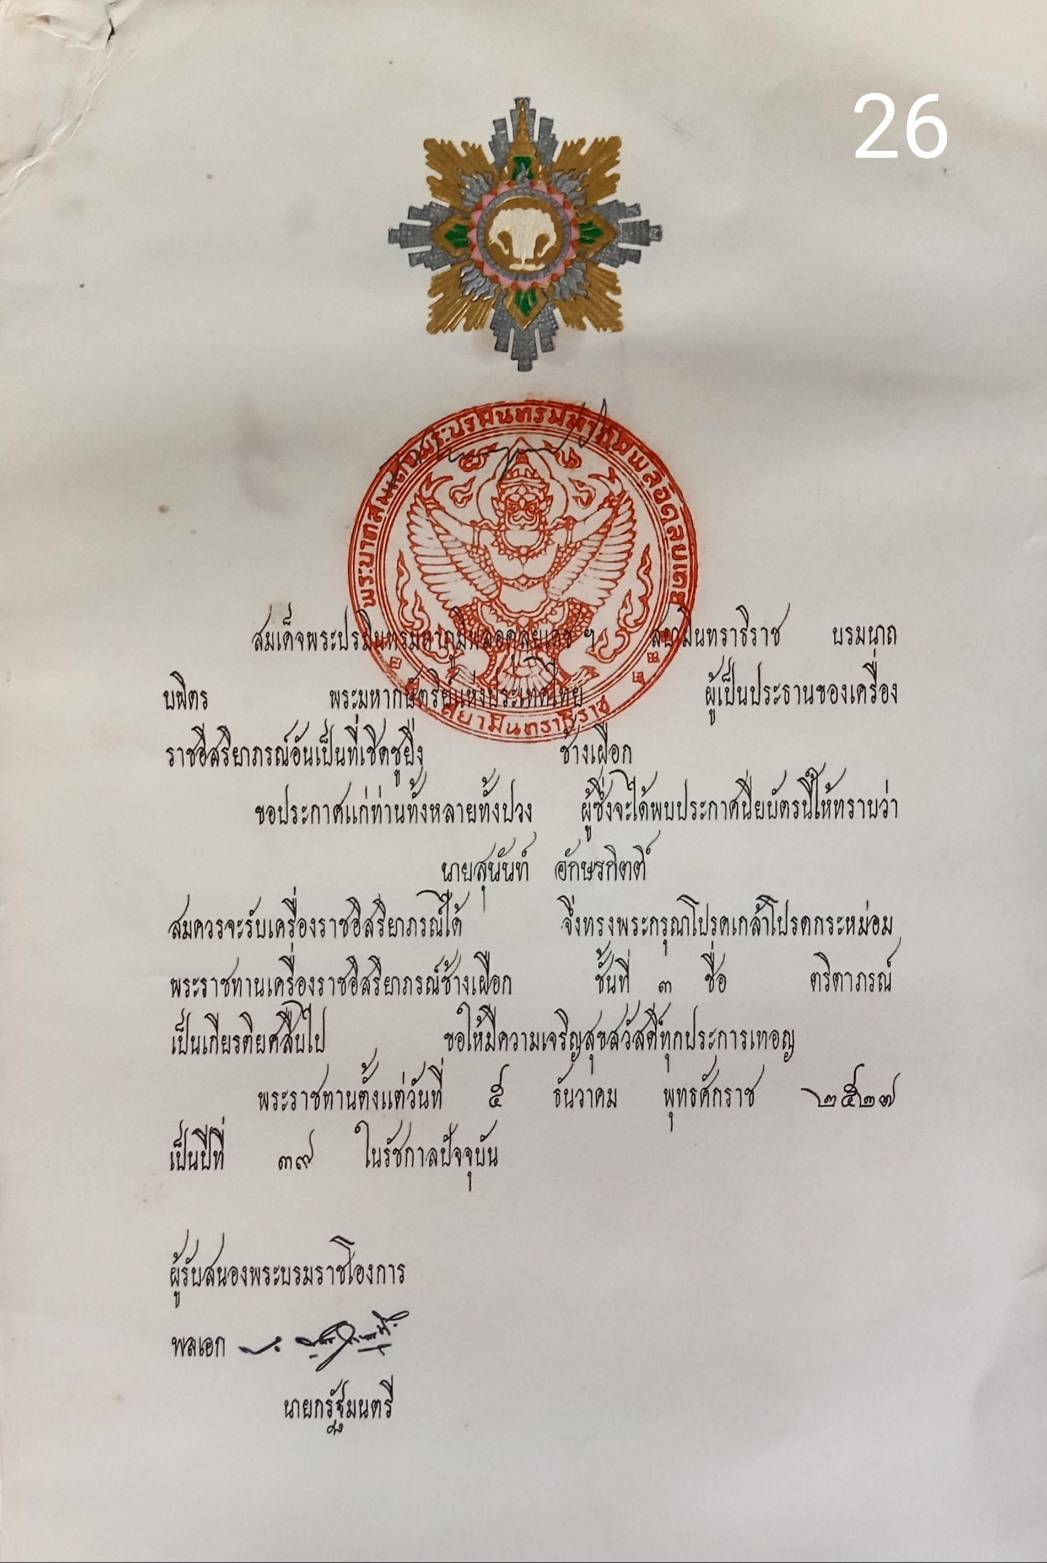 26
พระบาทสมเด็จพระปรมินทรมหาภูมิพลอดุลยเดช
สยามินทราธิราช
สมเด็จพระปรมินทรมหาภูมิพลอดุลยเดช ฯ สยามินทราธิราช บรมนาถ
บพิตร พระมหากษัตริย์แห่งประเทศไทย ผู้เป็นประธานของเครื่อง
ราชอิสริยาภรณ์อันเป็นที่เชิดชูยิ่ง ช้างเผือก
ขอประกาศแก่ท่านทั้งหลายทั้งปวง ผู้ซึ่งจะได้พบประกาศนียบัตรนี้ให้ทราบว่า
นายสุนันท์ อักษรกิตติ์
สมควรจะรับเครื่องราชอิสริยาภรณ์ได้ จึงทรงพระกรุณาโปรดเกล้าโปรดกระหม่อม
พระราชทานเครื่องราชอิสริยาภรณ์ช้างเผือก ชั้นที่ ๓ ชื่อ ตริตาภรณ์
เป็นเกียรติยศสืบไป ขอให้มีความเจริญสุขสวัสดิ์ทุกประการเทอญ
พระราชทานตั้งแต่วันที่ ๕ ธันวาคม พุทธศักราช ๒๕๒๗
เป็นปีที่ ๓๙ ในรัชกาลปัจจุบัน
ผู้รับสนองพระบรมราชโองการ
พลเอก
นายกรัฐมนตรี